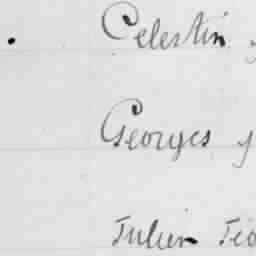 . Celestin
Georges
Julien